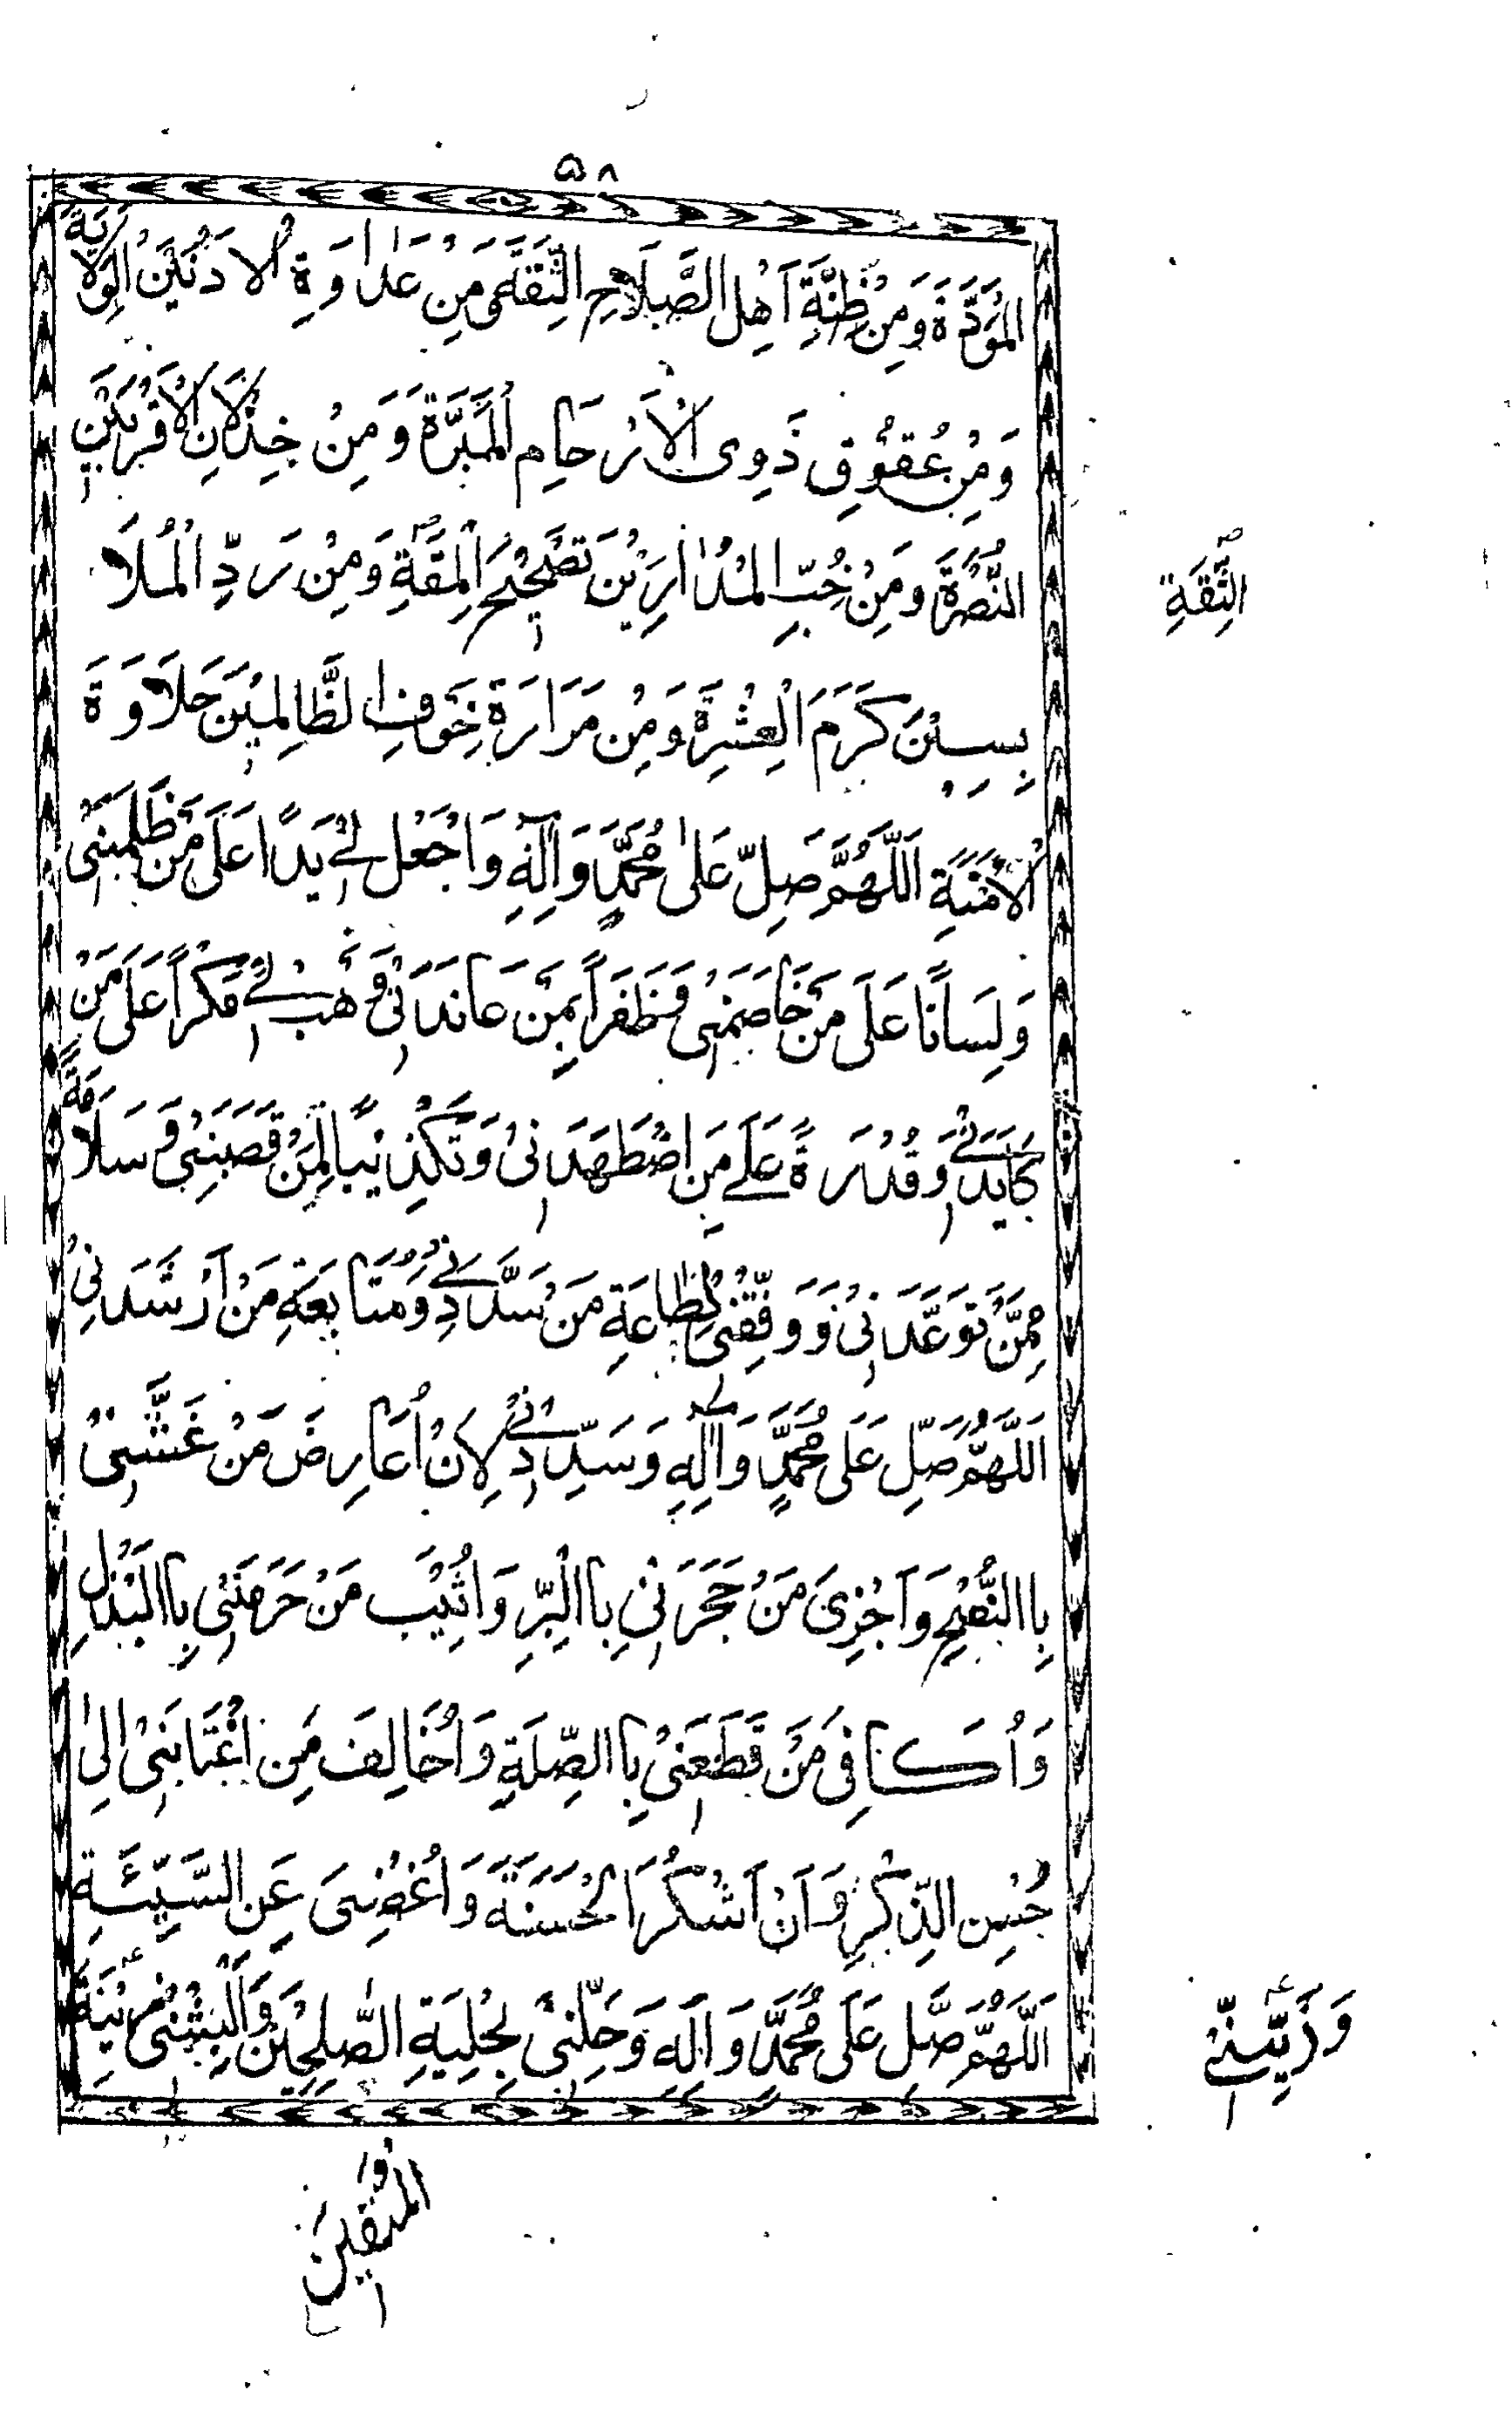 ۵۸
الْمَوَدَّةَ وَمِنْ ظِنَّةِ اَهْلِ الصَّلَاحِ الثِّقَةَ وَمِنْ عَدَاوَةِ الْاَدْنَيْنَ الْوِلَايَةَ
وَمِنْ عُقُوْقِ ذَوِى الْاَرْحَامِ الْمَبَرَّةَ وَمِنْ خِذْلَانِ الْاَقْرَبَيْنَ
النُّصْرَةَ وَمِنْ حُبِّ الْمُدَارِيْنَ تَصْحِيْحَ الْمِقَةِ وَمِنْ رَدِّ الْمُلَا
الثِّقَةِ
بِسِيْنَ كَرَمَ الْعِشْرَةِ وَمِنْ مَرَارَةِ خَوْفِ الظَّالِمِيْنَ حَلَاوَةَ
الْاَمَنَةِ اَللّٰهُمَّ صَلِّ عَلٰى مُحَمَّدٍ وَاٰلِهِ وَاجْعَلْ لِىْ يَدًا عَلَى مَنْ ظَلَمَنِىْ
وَلِسَانًا عَلَى مَنْ خَاصَمَنِىْ وَظَفَرًا بِمَنْ عَانَدَنِىْ وَهَبْ لِىْ مَكْرًا عَلَى مَنْ
كَايَدَنِىْ وَقُدْرَةً عَلَى مَنِ اضْطَهَدَنِىْ وَتَكْذِيْبًا لِمَنْ قَصَبَنِىْ وَسَلَامَةً
مِمَّنْ تَوَعَّدَنِىْ وَوَفِّقْنِىْ لِطَاعَةِ مَنْ سَدَّدَنِىْ وَمُتَابَعَةِ مَنْ اَرْشَدَنِىْ
اَللّٰهُمَّ صَلِّ عَلَى مُحَمَّدٍ وَاٰلِهِ وَسَدِّدْنِىْ لِاَنْ اُعَارِضَ مَنْ غَشَّنِىْ
بِاالنُّصْحِ وَاَجْزِىَ مَنْ هَجَرَنِىْ بِاالْبِرِّ وَاُثِيْبَ مَنْ حَرَمَنِىْ بِاالْبَذْلِ
وَاُكَافِىَ مَنْ قَطَعَنِىْ بِاالصِّلَةِ وَاُخَالِفَ مَنِ اغْتَابَنِىْ اِلٰى
حُسْنِ الذِّكْرِ وَاَنْ اَشْكُرَ الْحَسَنَةَ وَاُغْضِىَ عَنِ السَّيِّئَةِ
اَللّٰهُمَّ صَلِّ عَلَى مُحَمَّدٍ وَاٰلِهِ وَحَلِّنِىْ بِحِلْيَةِ الصّٰلِحِيْنَ وَاَلْبِسْنِىْ زِيْنَةَ
وَزَيِّنِّىْ
الْمُتَّقِيْنَ